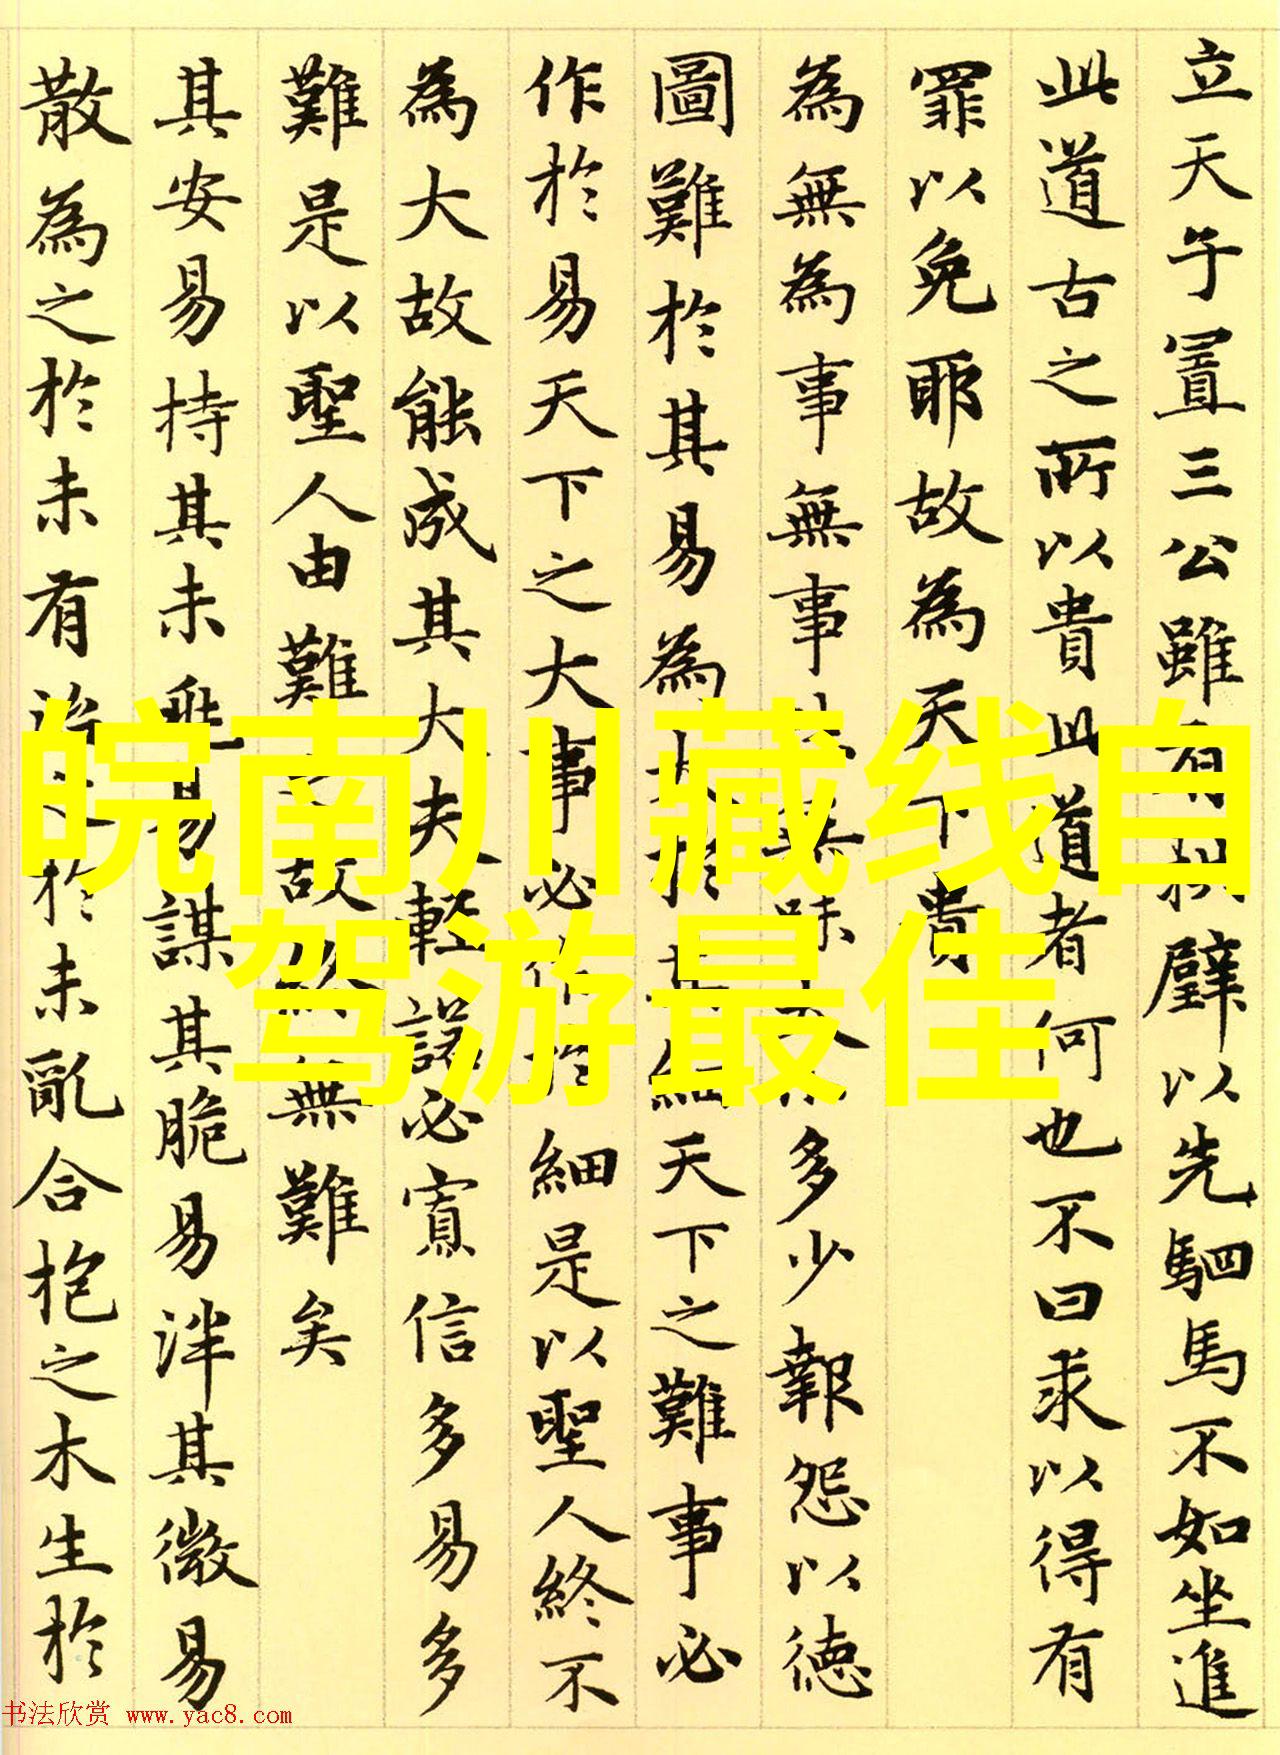 立天子置三公雖有拱璧以先駟馬不如坐進
此道古之所以貴此道者何也不曰求以得有
罪以免耶故為天下貴
為無為事無事味無味大小多少報怨以德
圖難於其易為大於其細天下之難事必
作於易天下之大事必作於細是以聖人終不
為大故能成其大夫輕諾必寡信多易多
難是以聖人由難之故終無難矣
其安易持其未兆易謀其脆易泮其微易
散為之於未有治之於未亂合抱之木生於
皖南川藏线自
驾游最佳
书法欣赏 www.yac8.com